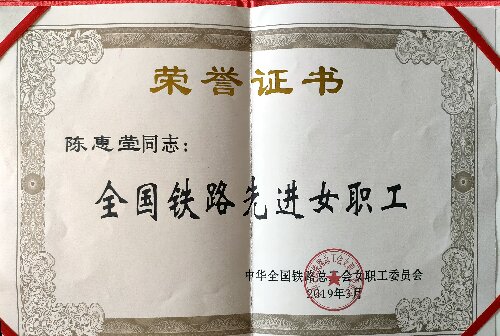 荣誉证书
陈惠莹同志：
全国铁路先进女职工
中华全国铁路总工会女职工委员会
2019年3月